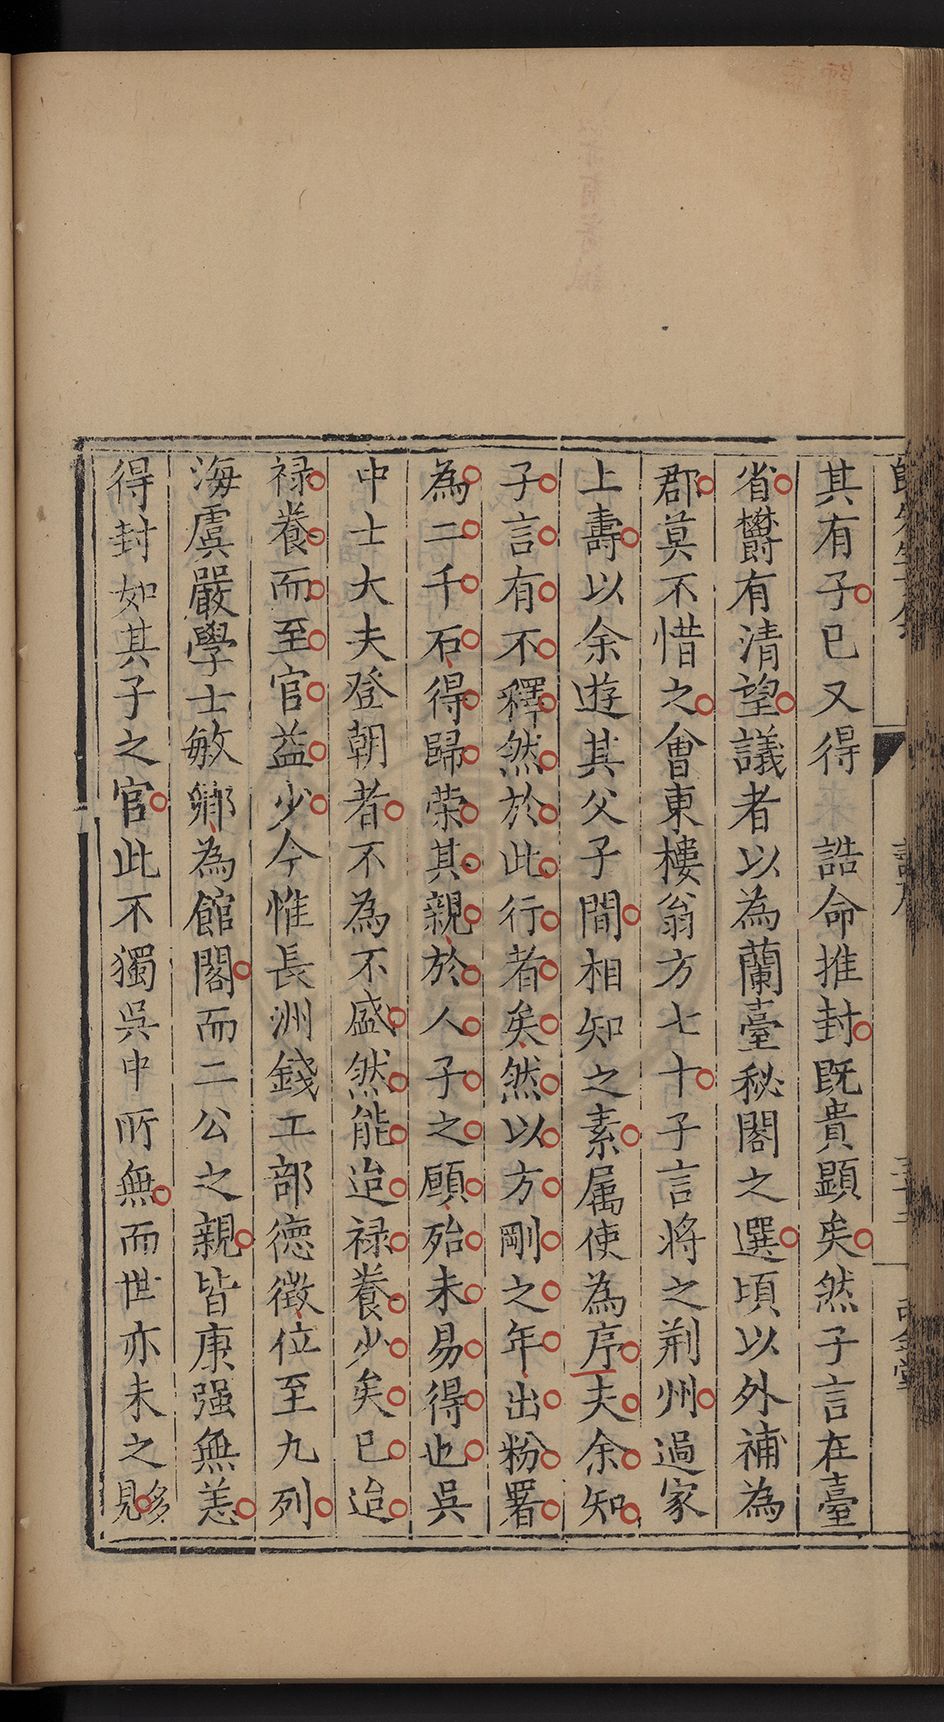 其有子已又得誥命推封既貴顯矣然子言在臺
省欝有清望議者以為蘭臺秘閣之選頃以外補為
郡莫不惜之會東樓翁方七十子言將之荆州過家
上壽以余遊其父子間相知之素属使為序夫余知
子言有不釋然於此行者矣然以方剛之年出粉署
為二千石得歸荣其親於人子之願殆未易得也吳
中士大夫登朝者不為不盛然能迨禄養少矣已迨
禄養而至官益少今惟長洲錢工部德徵位至九列
海虞嚴學士敏卿為館閣而二公之親皆康强無恙
得封如其子之官此不獨吳中所無而世亦未之多
見